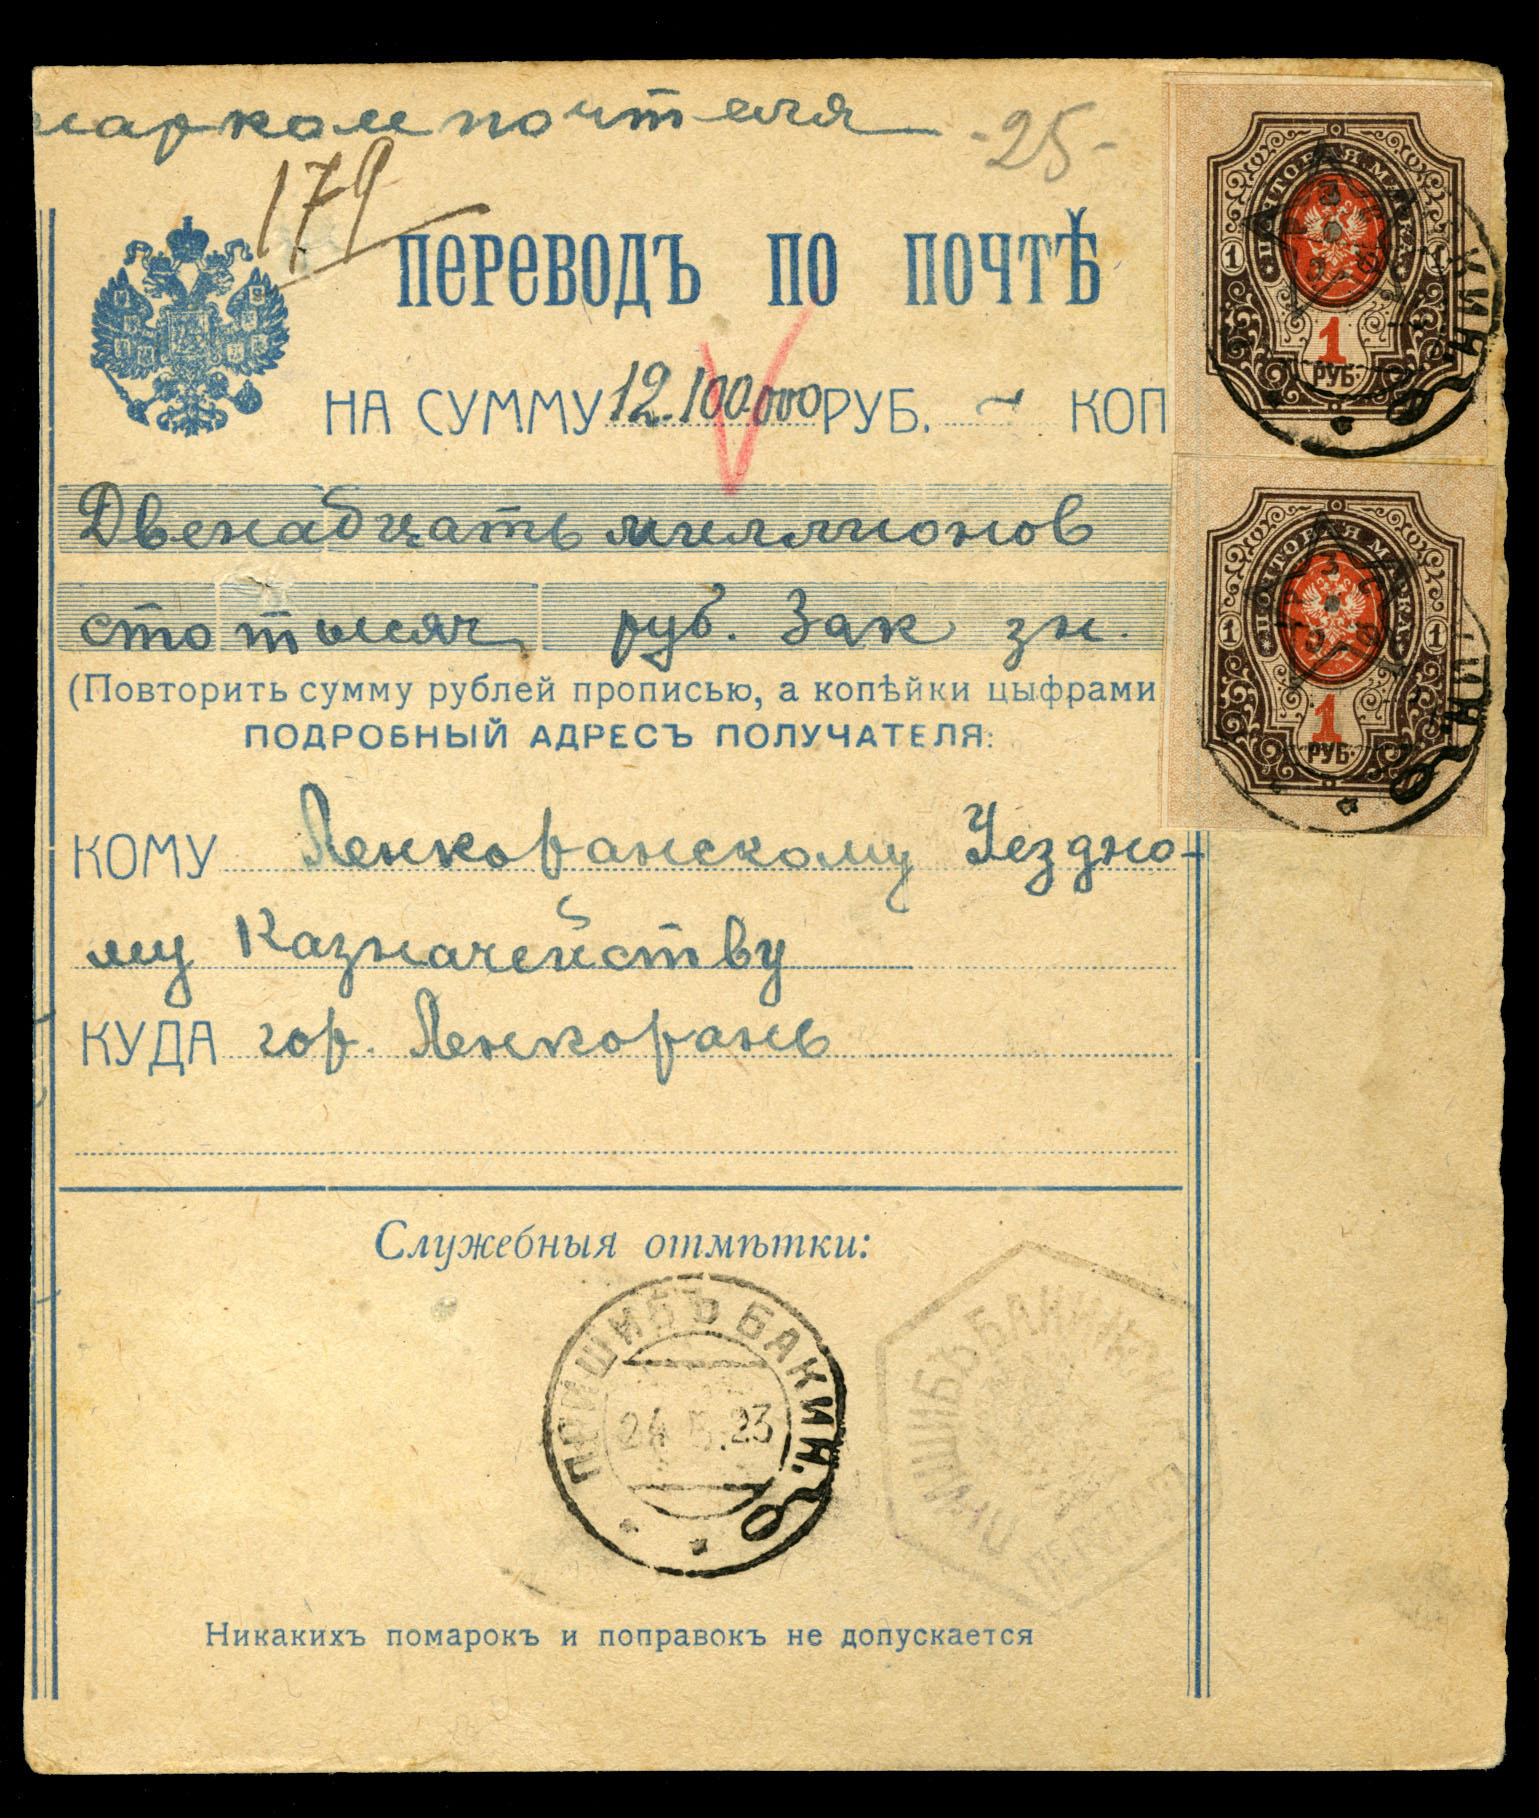 наркомпочтеля -25-
179
ПЕРЕВОДЪ ПО ПОЧТѢ
НА СУММУ 12.100.000 РУБ. — КОП
Двенадцать миллионов
сто тысяч руб. Зак зн.
(Повторить сумму рублей прописью, а копѣйки цыфрами
ПОДРОБНЫЙ АДРЕСЪ ПОЛУЧАТЕЛЯ:
КОМУ Ленкоранскому Уездно-
му Казначейству
КУДА гор. Ленкорань
Служебныя отмѣтки:
ПРИШИБЪ БАКИН.
24.5.23
ПРИШИБЪ БАКИНСК
Никакихъ помарокъ и поправокъ не допускается
ПОЧТОВАЯ МАРКА
1 1
1
РУБ.
КИН.
ПОЧТОВАЯ МАРКА
1 1
1
РУБ.
ИН.